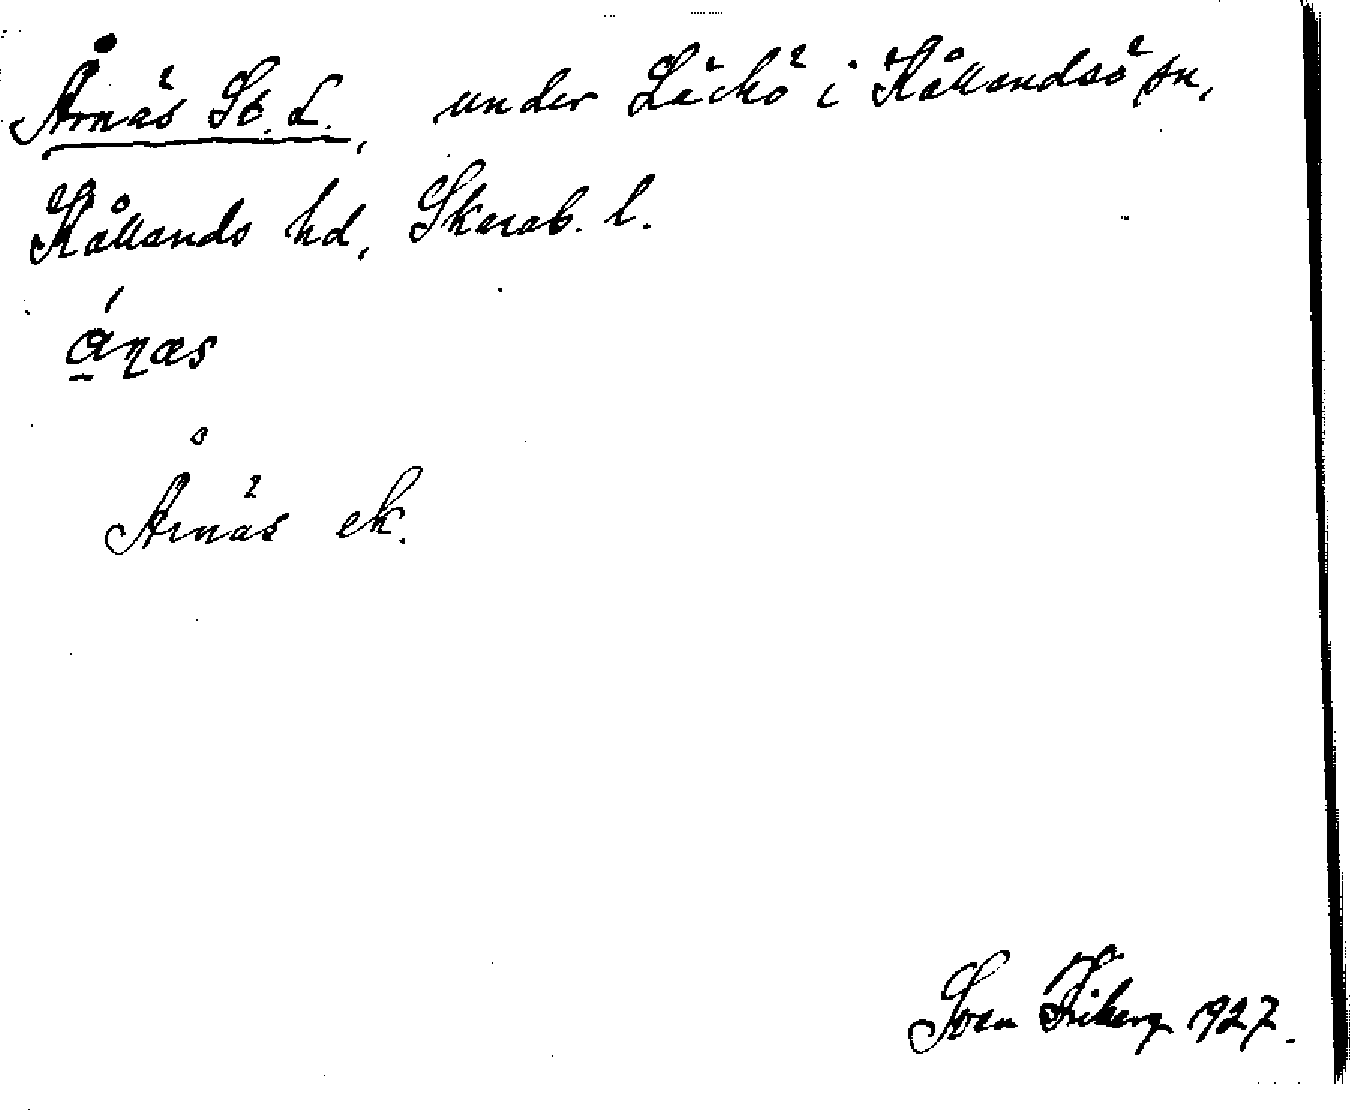 Årnäs St. L., under Läckö i Kållandsö sn,
Kållands hd, Skarab. l.
á̱ɳæs
Årnäs ek.
Sven Friberg 1927.